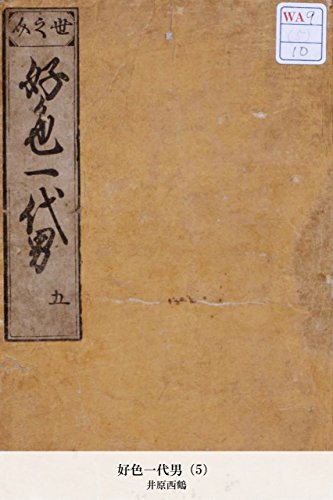 WA9
(5)
10
好色一代男
五
好色一代男（5）
井原西鶴